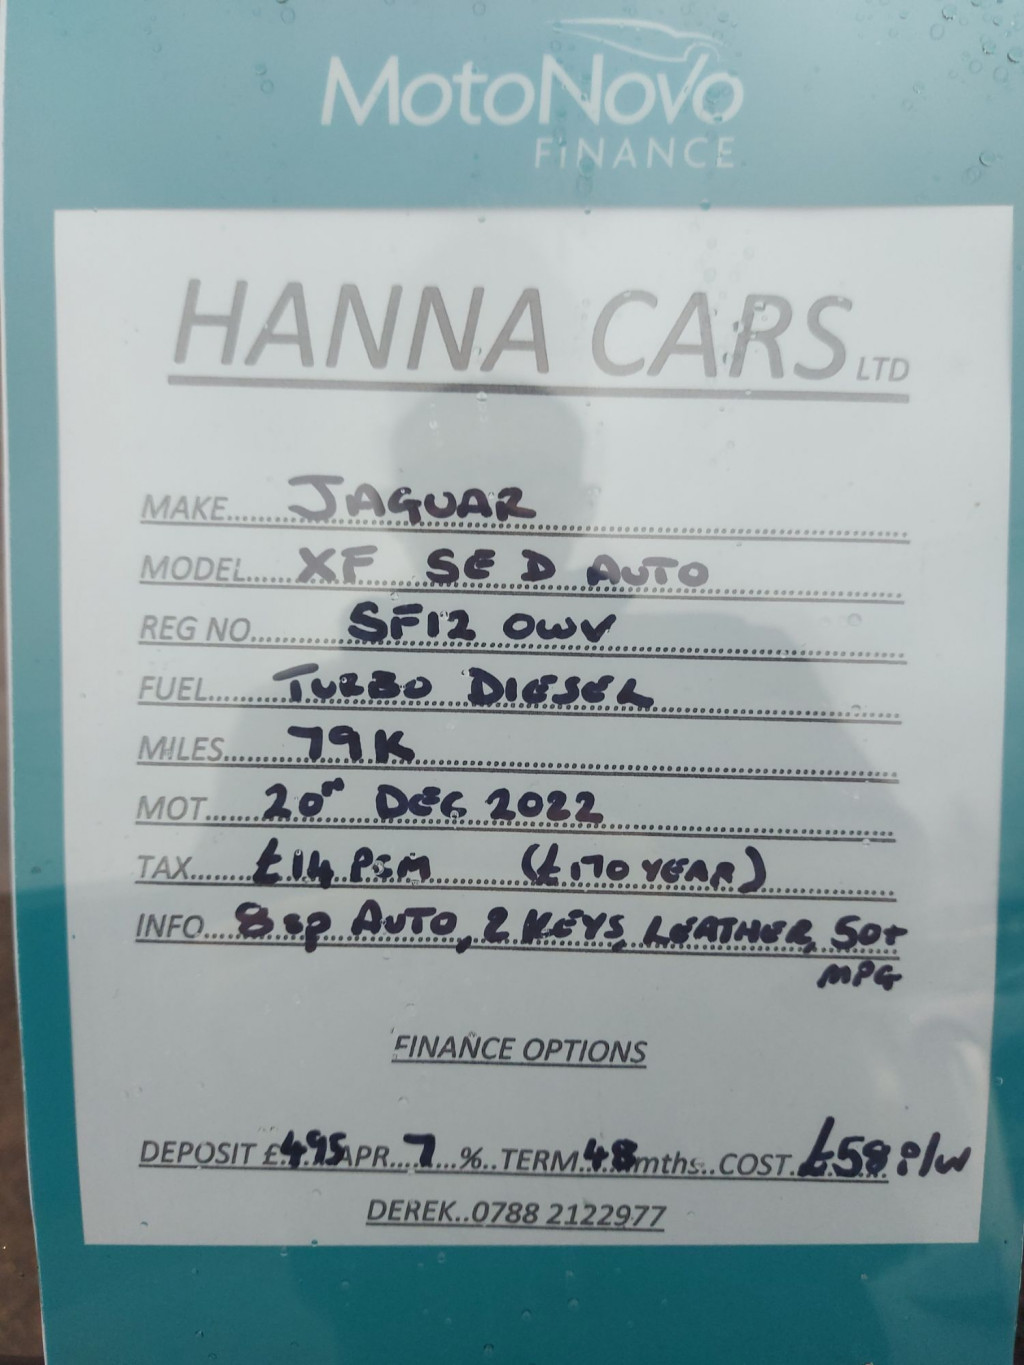 MotoNovo
FINANCE
HANNA CARS LTD
MAKE......JAGUAR
MODEL.....XF SE D AUTO
REG NO.........SF12 OWV
FUEL.......TURBO DIESEL
MILES......79K
MOT......20TH DEC 2022
TAX......£14 PCM (£170 YEAR)
INFO...8 sp AUTO, 2 KEYS, LEATHER, 50+
MPG
FINANCE OPTIONS
DEPOSIT £495 APR...7...%..TERM.48mths..COST.£58 P/W
DEREK..0788 2122977